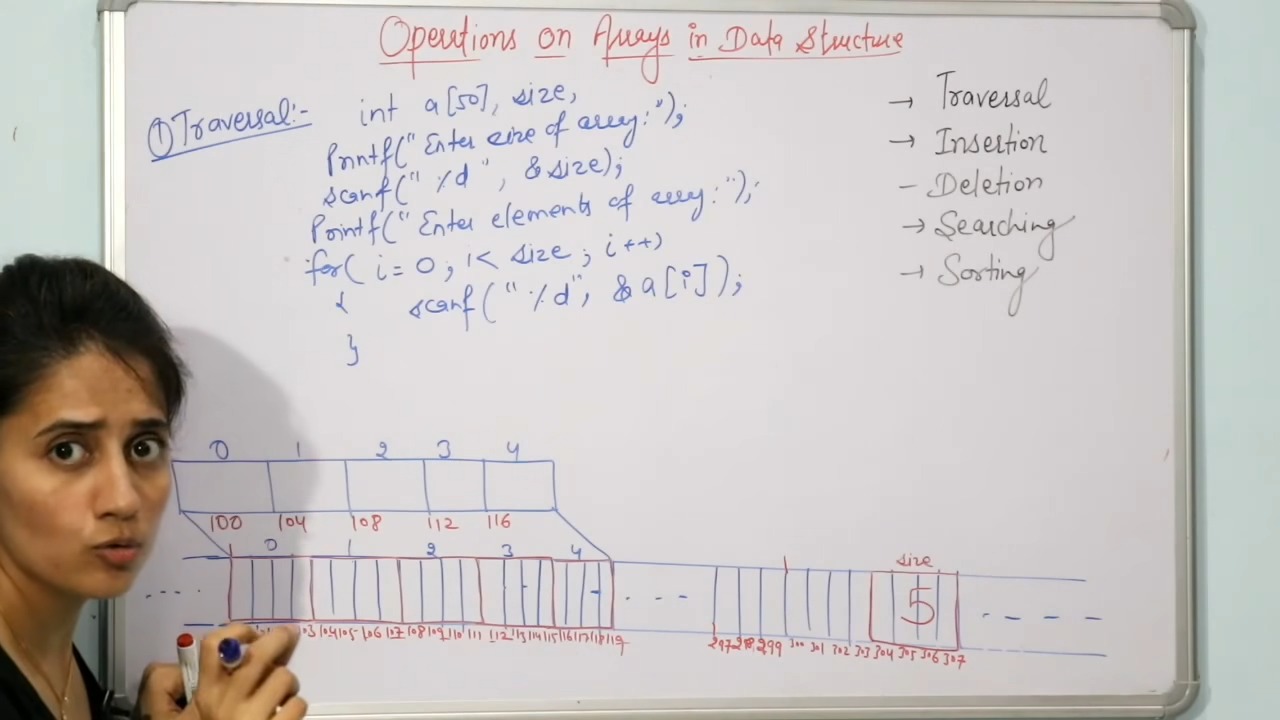 Operations on Arrays in Data Structure
① Traversal:-
int a[50], size,
Printf(" Enter size of array:");
scanf(" %d ", &size);
Printf(" Enter elements of array:");
for( i= 0 ; i< size ; i++)
{ scanf(" %d", &a[i]);
}
→ Traversal
→ Insertion
- Deletion
→ Searching
→ Sorting
0 1 2 3 4
100 104 108 112 116
0 1 2 3 4
size
5
03 104 105 106 107 108 109 110 111 112 113 114 115 116 117 118 119
297 298 299 300 301 302 303 304 305 306 307